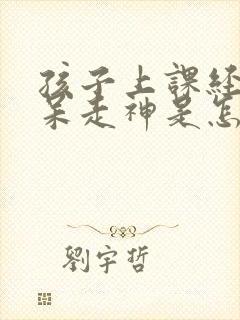 孩子上課經
呆走神是怎
劉宇哲